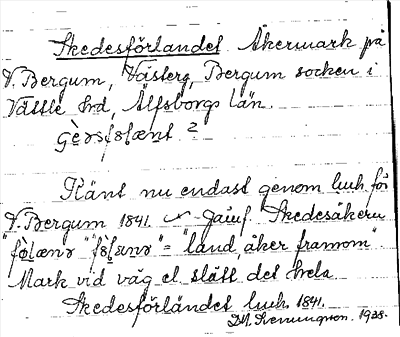 Skedesförlandet Åkermark på
V. Bergum, Västerg, Bergum socken i
Vättle hd, Älfsborgs län.
?
Känt nu endast genom luh. för
V. Bergum 1841. Jämf. Skedesåkern
= "land, åker framom".
Mark vid väg el. slätt det hela.
Skedesförländet luh. 1841.
1928.